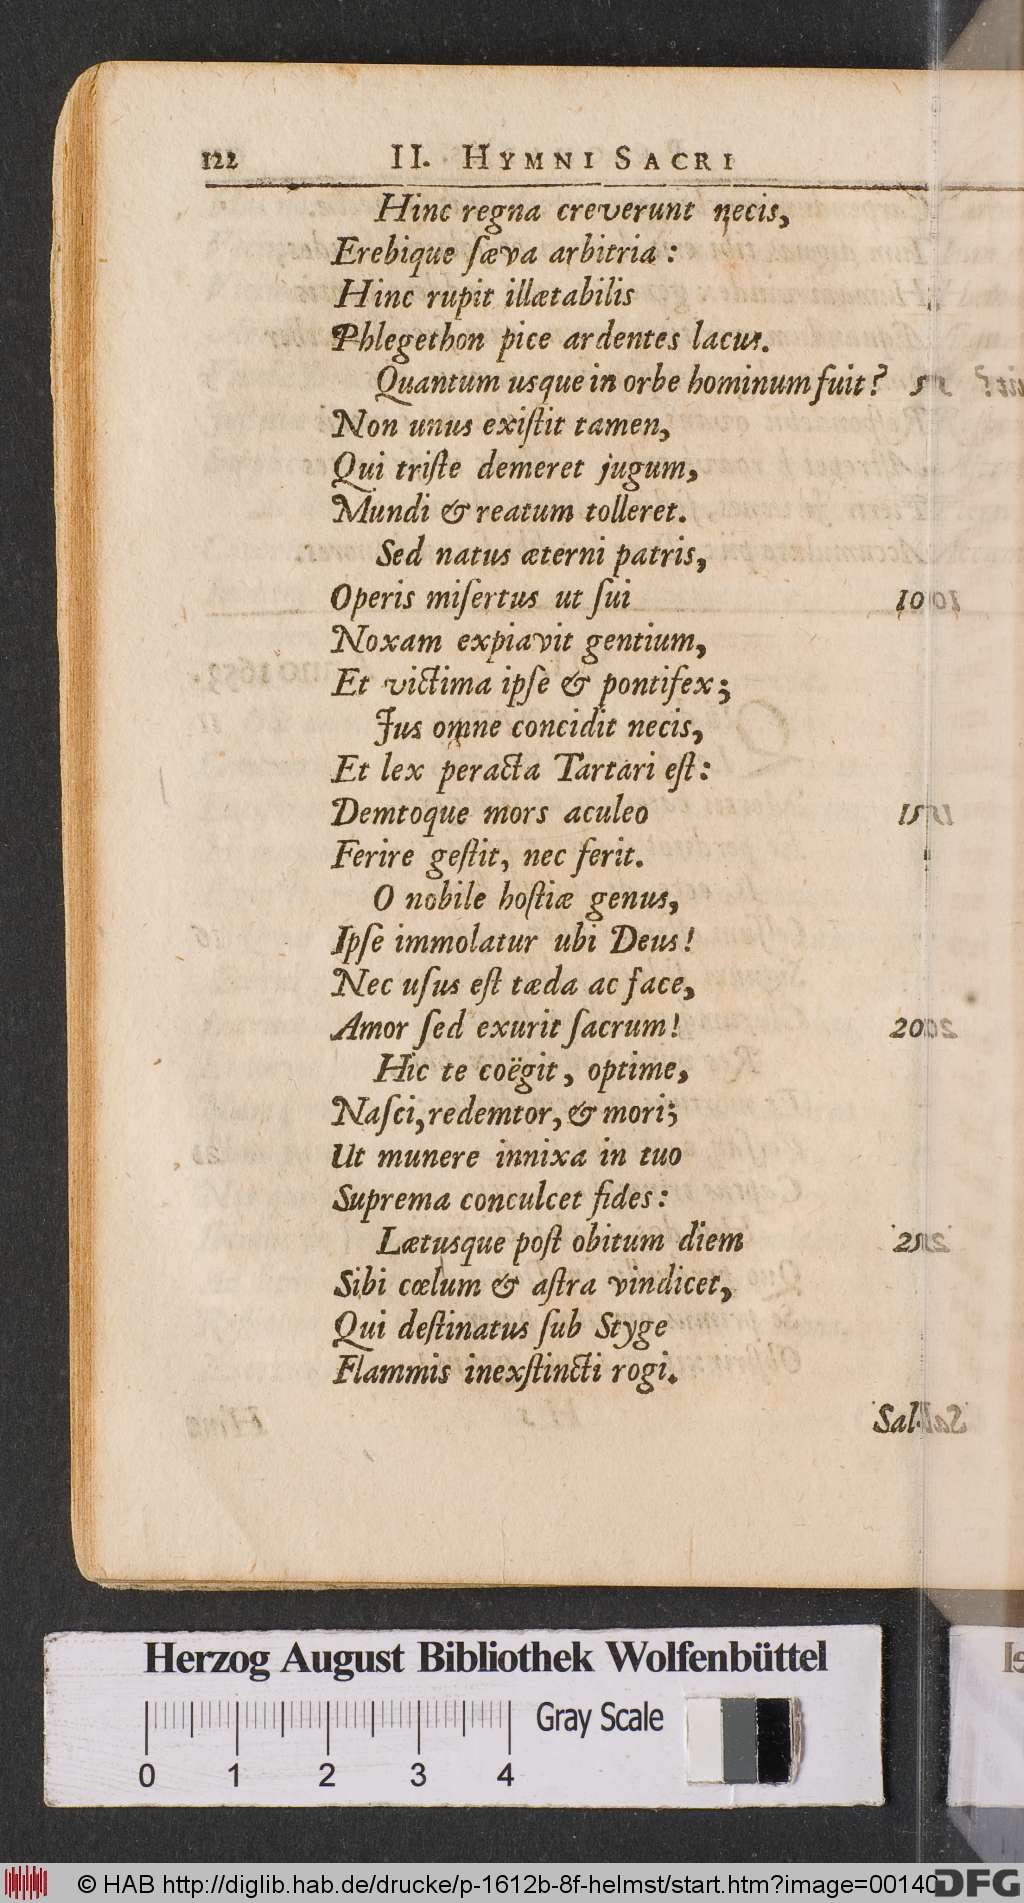 122 II. HYMNI SACRI
Hinc regna creverunt necis,
Erebique ſæva arbitria:
Hinc rupit illætabilis
Phlegethon pice ardentes lacus.
Quantum usque in orbe hominum fuit? 5
Non unus exiſtit tamen,
Qui triſte demeret jugum,
Mundi & reatum tolleret.
Sed natus æterni patris,
Operis miſertus ut ſui 10
Noxam expiavit gentium,
Et victima ipſe & pontifex;
Jus omne concidit necis,
Et lex peracta Tartari eſt:
Demtoque mors aculeo 15
Ferire geſtit, nec ferit.
O nobile hoſtiæ genus,
Ipſe immolatur ubi Deus!
Nec uſus eſt tæda ac face,
Amor ſed exurit ſacrum! 20
Hic te coëgit, optime,
Naſci, redemtor, & mori;
Ut munere innixa in tuo
Suprema conculcet fides:
Lætusque poſt obitum diem 25
Sibi cœlum & aſtra vindicet,
Qui deſtinatus ſub Styge
Flammis inexſtincti rogi.
Sal-
Herzog August Bibliothek Wolfenbüttel
Gray Scale
0 1 2 3 4
© HAB http://diglib.hab.de/drucke/p-1612b-8f-helmst/start.htm?image=00140
DFG